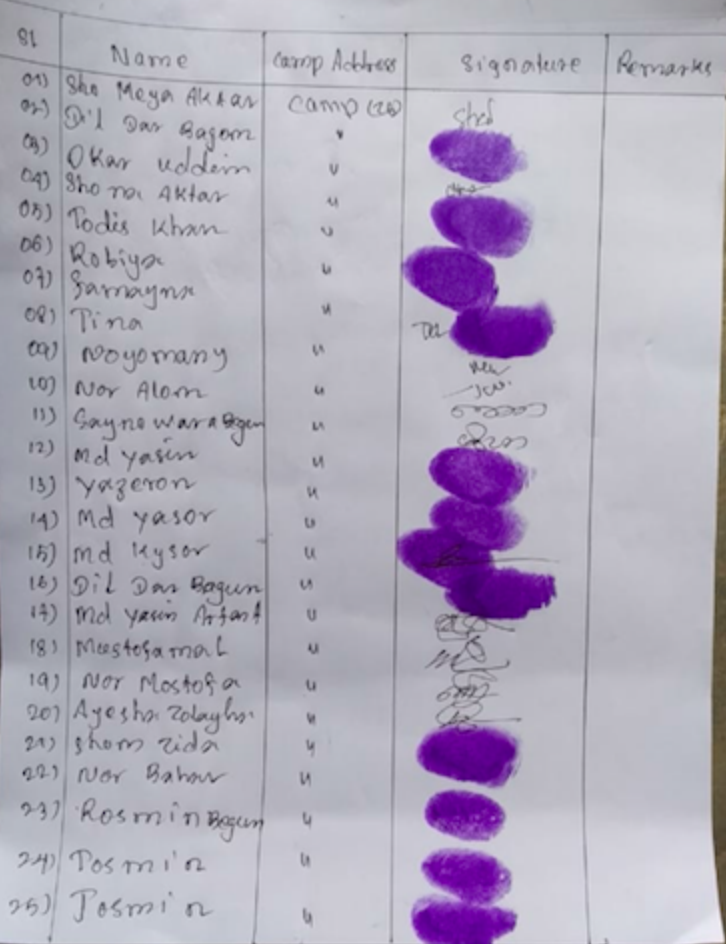 Sl Name Camp Address Signature Remarks
01) Sho Meya Aktar Camp (26)
02) Dil Dar Bagom "
03) Okar uddein "
04) Shona Aktar "
05) Todis Khan "
06) Robiya "
07) Samayna "
08) Tina
09) Noyomany "
10) Nor Alom "
11) Saynowara Begum "
12) Md Yasin "
13) Yazeron "
14) Md Yasor "
15) Md Kysor "
16) Dil Dar Bagun "
17) Md Yasin Arfant "
18) Mustofa "
19) Nor Mostofa "
20) Ayesha "
21) Shom Zida "
22) Nor Bahar "
23) Rosmin Begun "
24) Tosmin "
25) Josmin "